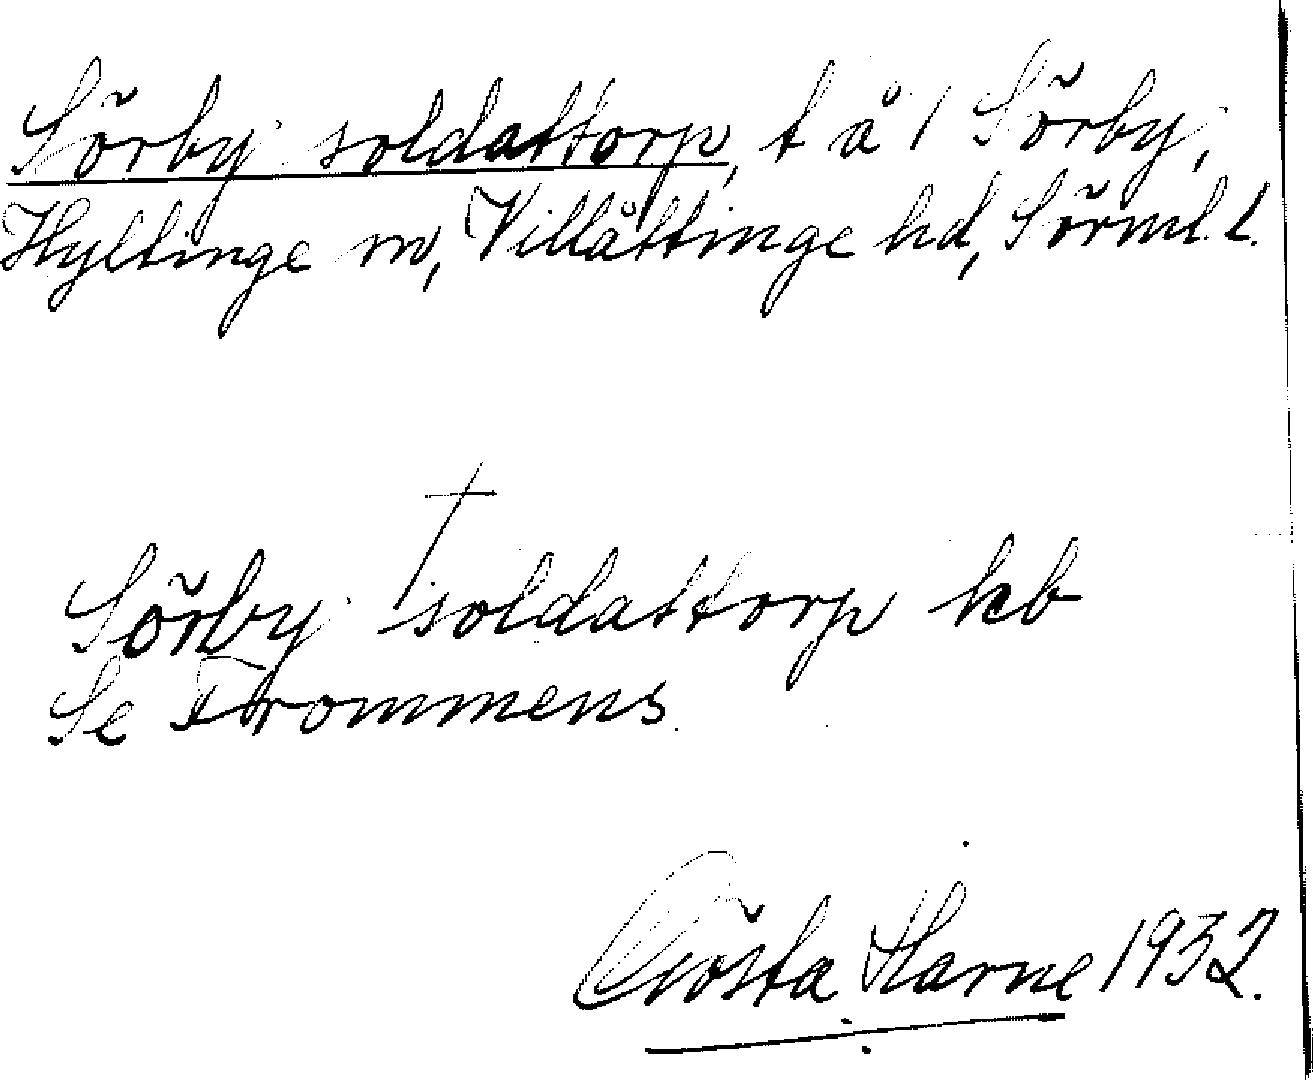 Sörby soldattorp, t å 1 Sörby,
Hyltinge sn, Villåttinge hd, Sörml. l.
Sörby †soldattorp kb
Se Trommens.
Gösta Harne 1932.